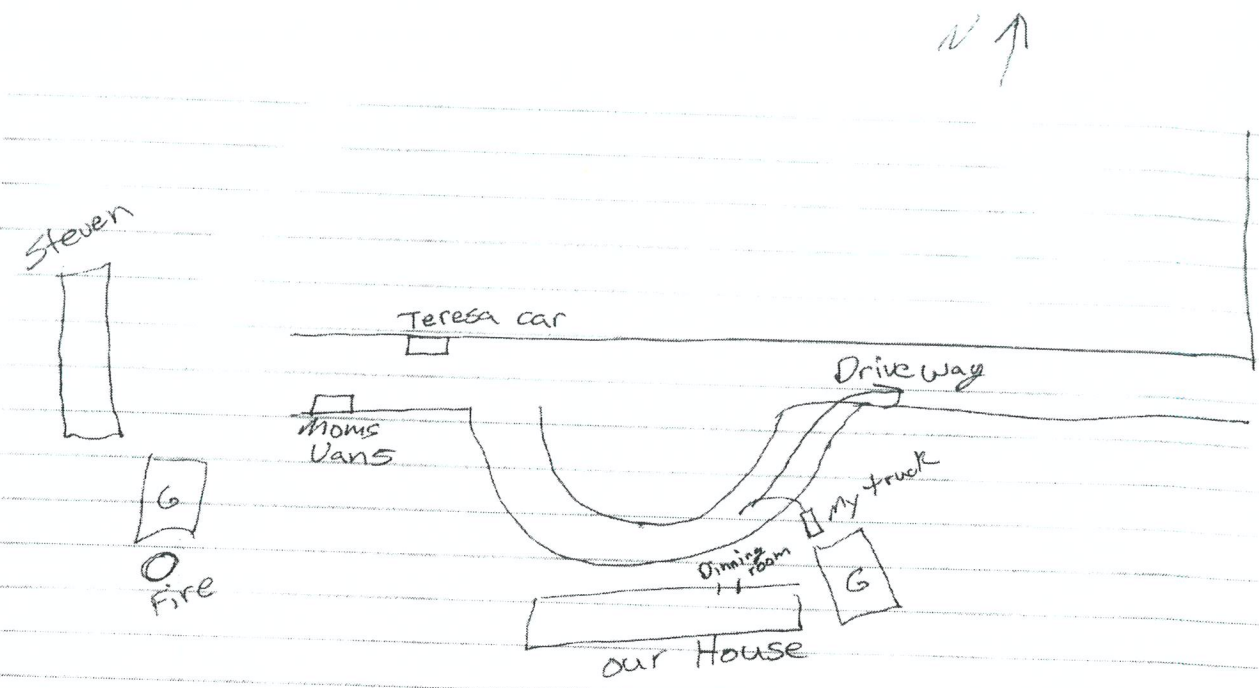 N
Steven
Teresa car
Drive way
Moms
Vans
My truck
G
Dinning
room
G
Fire
our House